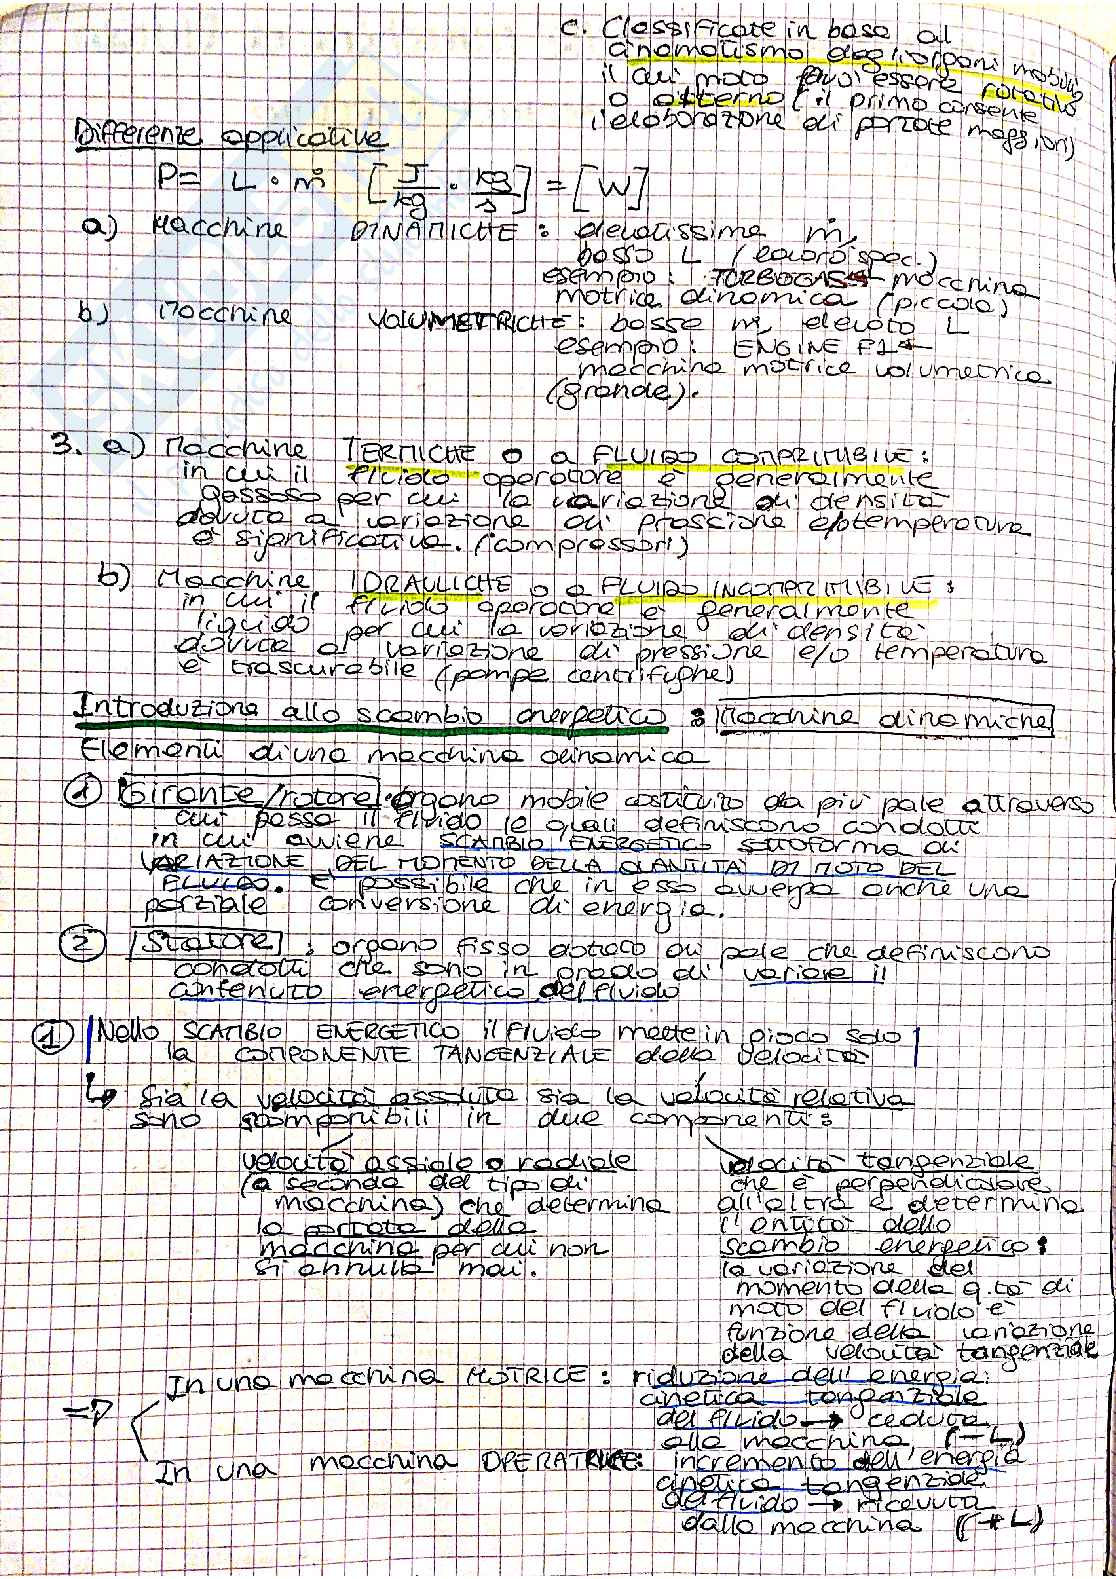 c. Classificate in base al
cinematismo degli organi mobili
il cui moto può essere rotativo
o alterno (il primo consente
l'elaborazione di portate maggiori)
Differenze applicative
P = L · ṁ [J/kg · kg/s] = [W]
a) Macchine DINAMICHE: elevatissima ṁ,
basso L (lavoro spec.)
esempio: TURBOGAS macchina
motrice dinamica (piccola)
b) Macchine VOLUMETRICHE: bassa ṁ, elevato L
esempio: ENGINE F1
macchina motrice volumetrica
(grande).
3. a) Macchine TERMICHE o a FLUIDO COMPRIMIBILE:
in cui il fluido operatore è generalmente
gassoso per cui la variazione di densità
dovuta a variazione di pressione e/o temperatura
è significativa. (compressori)
b) Macchine IDRAULICHE o a FLUIDO INCOMPRIMIBILE:
in cui il fluido operatore è generalmente
liquido per cui la variazione di densità
dovuta a variazione di pressione e/o temperatura
è trascurabile (pompe centrifughe)
Introduzione allo scambio energetico: Macchine dinamiche
Elementi di una macchina dinamica
1 Girante/rotore: organo mobile costituito da più pale attraverso
cui passa il fluido le quali definiscono condotti
in cui avviene SCAMBIO ENERGETICO sottoforma di
VARIAZIONE DEL MOMENTO DELLA QUANTITÀ DI MOTO DEL
FLUIDO. È possibile che in esso avvenga anche una
parziale conversione di energia.
2 Statore: organo fisso dotato di pale che definiscono
condotti che sono in grado di variare il
contenuto energetico del fluido
1 Nello SCAMBIO ENERGETICO il fluido mette in gioco solo
la COMPONENTE TANGENZIALE della velocità
↳ Sia la velocità assoluta sia la velocità relativa
sono scomponibili in due componenti:
velocità assiale o radiale
(a seconda del tipo di
macchina) che determina
la portata della
macchina per cui non
si annulla mai.
velocità tangenziale
che è perpendicolare
all'altra e determina
l'entità dello
scambio energetico:
la variazione del
momento della q.tà di
moto del fluido è
funzione della variazione
della velocità tangenziale
⇒ In una macchina MOTRICE: riduzione dell'energia
cinetica tangenziale
del fluido → ceduta
alla macchina (-L)
In una macchina OPERATRICE: incremento dell'energia
cinetica tangenziale
del fluido → ricevuta
dalla macchina (+L)